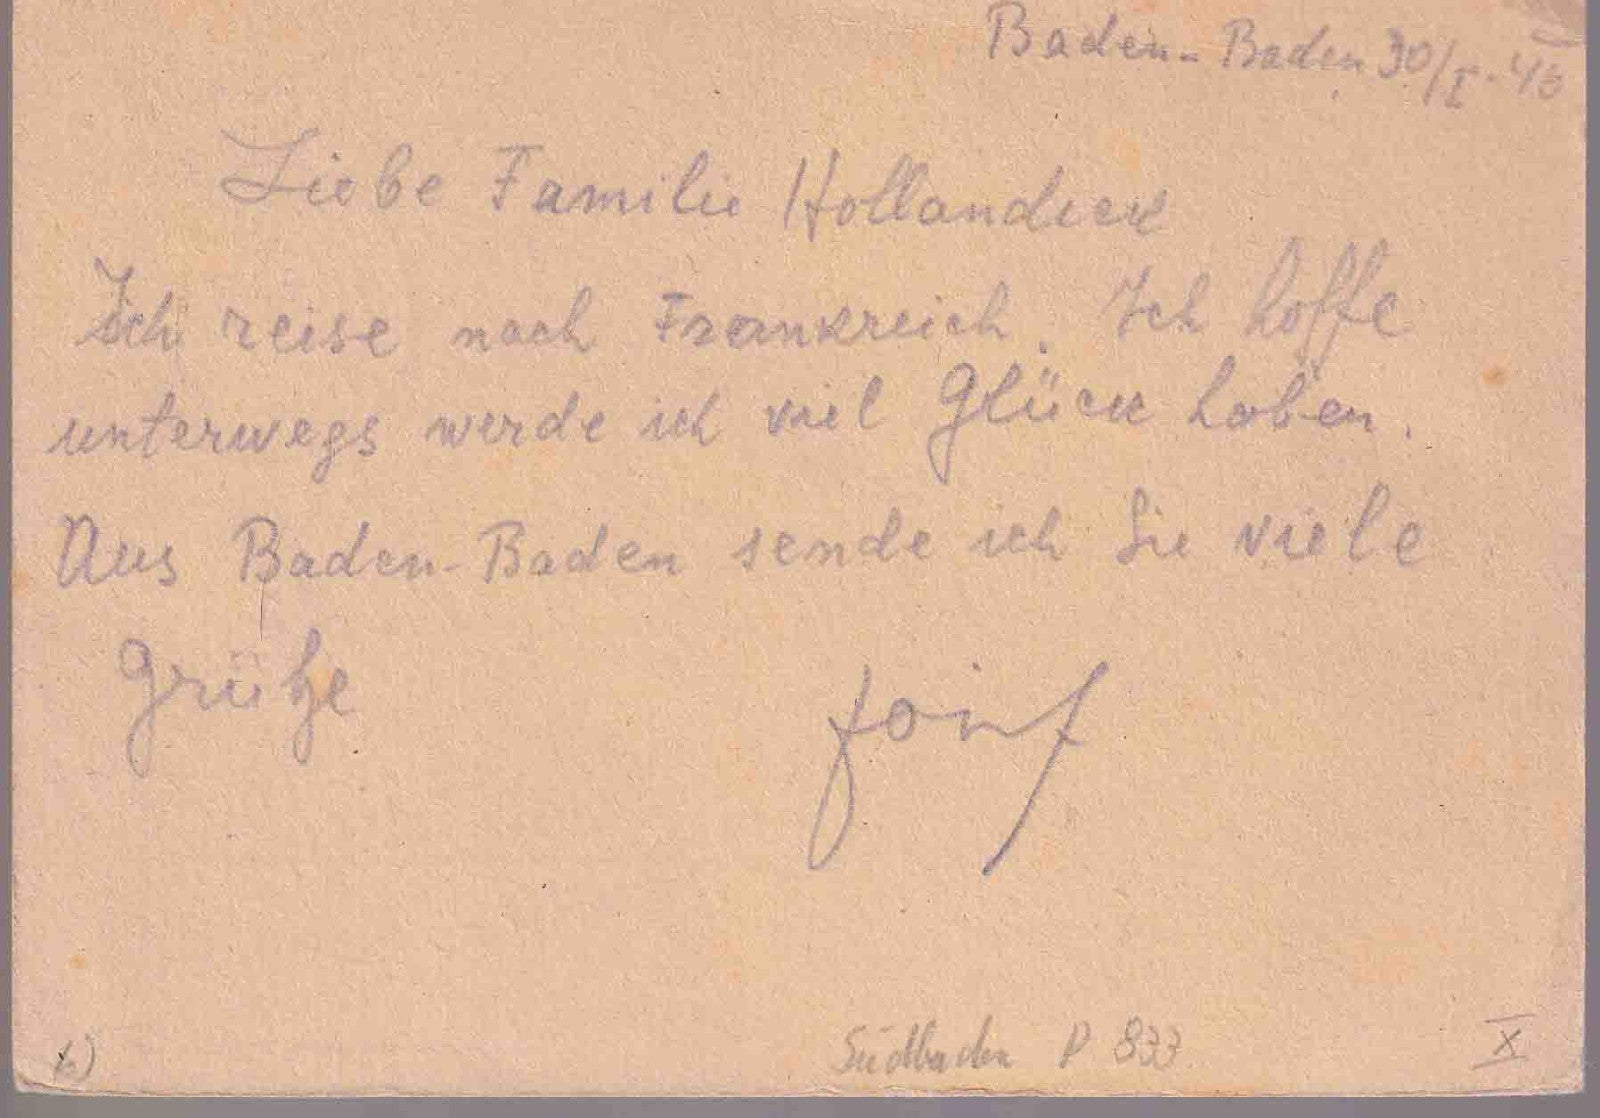 Baden-Baden 30/I-46
Liebe Familie
Ich reise nach Frankreich. Ich hoffe
unterwegs werde ich viel Glück haben.
Aus Baden-Baden sende ich Sie viele
Grüße
b)
Südbaden P 833
X